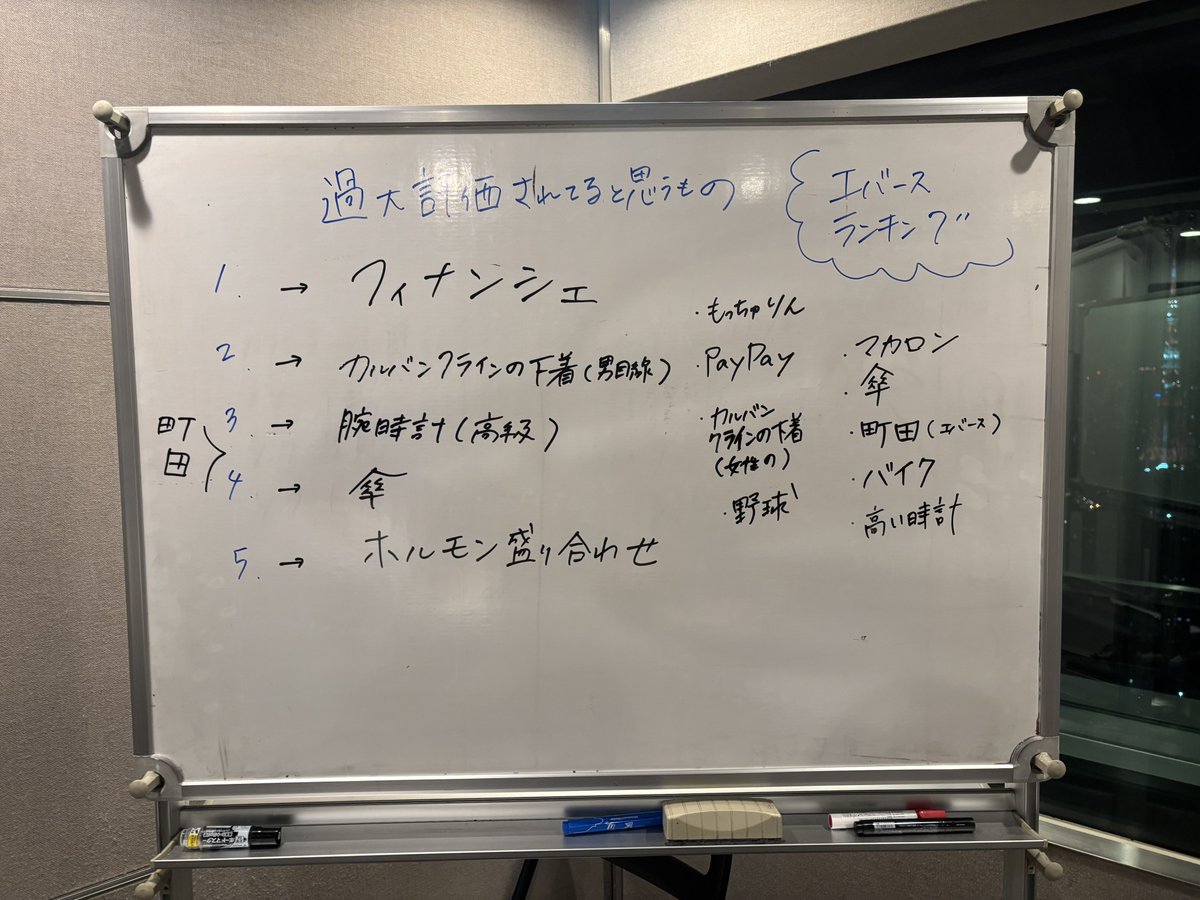 過大評価されてると思うもの
エバース
ランキング
1. → フィナンシェ
2. → カルバンクラインの下着(男目線)
3. → 腕時計(高級)
4. → 傘
町
田
5. → ホルモン盛り合わせ
・もっちゅりん
・PayPay
・カルバン
クラインの下着
(女性の)
・野球
・マカロン
・傘
・町田(エバース)
・バイク
・高い時計